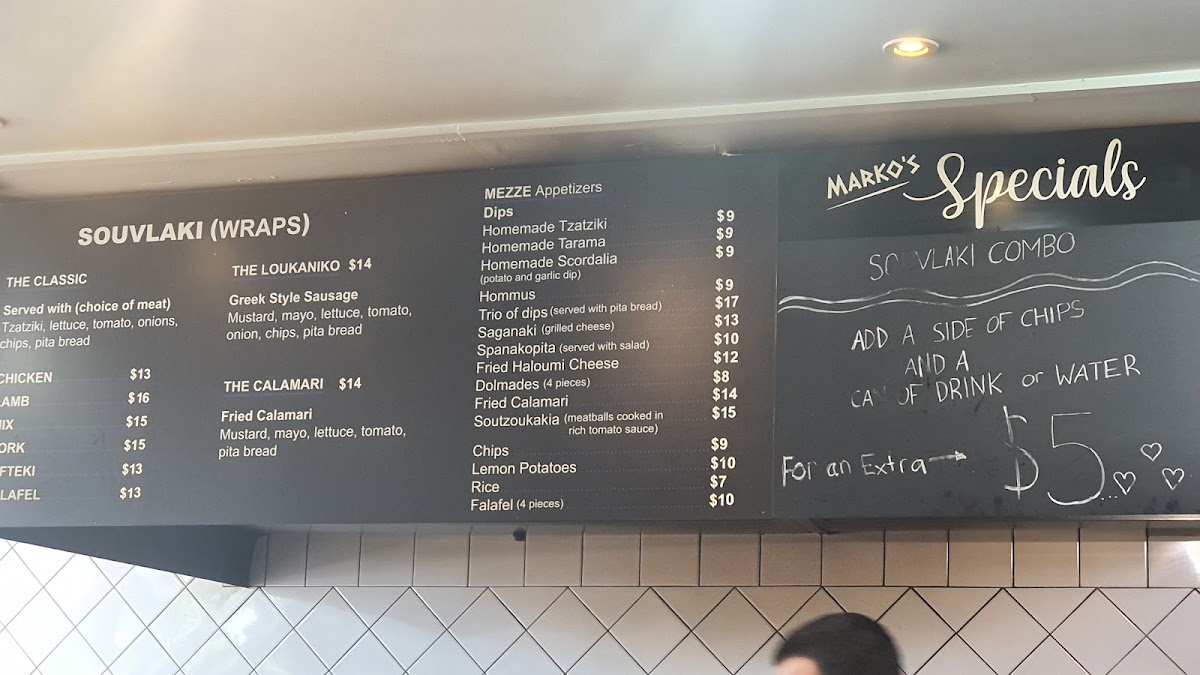 SOUVLAKI (WRAPS)
THE CLASSIC
Served with (choice of meat)
Tzatziki, lettuce, tomato, onions,
chips, pita bread
CHICKEN $13
LAMB $16
MIX $15
PORK $15
$13
FALAFEL $13
THE LOUKANIKO $14
Greek Style Sausage
Mustard, mayo, lettuce, tomato,
onion, chips, pita bread
THE CALAMARI $14
Fried Calamari
Mustard, mayo, lettuce, tomato,
pita bread
MEZZE Appetizers
Dips
Homemade Tzatziki $9
Homemade Tarama $9
Homemade Scordalia $9
(potato and garlic dip)
Hommus $9
Trio of dips (served with pita bread) $17
Saganaki (grilled cheese) $13
Spanakopita (served with salad) $10
Fried Haloumi Cheese $12
Dolmades (4 pieces) $8
Fried Calamari $14
Soutzoukakia (meatballs cooked in $15
rich tomato sauce)
Chips $9
Lemon Potatoes $10
Rice $7
Falafel (4 pieces) $10
MARKO'S Specials
SOUVLAKI COMBO
ADD A SIDE OF CHIPS
AND A
CAN OF DRINK or WATER
For an Extra → $5...